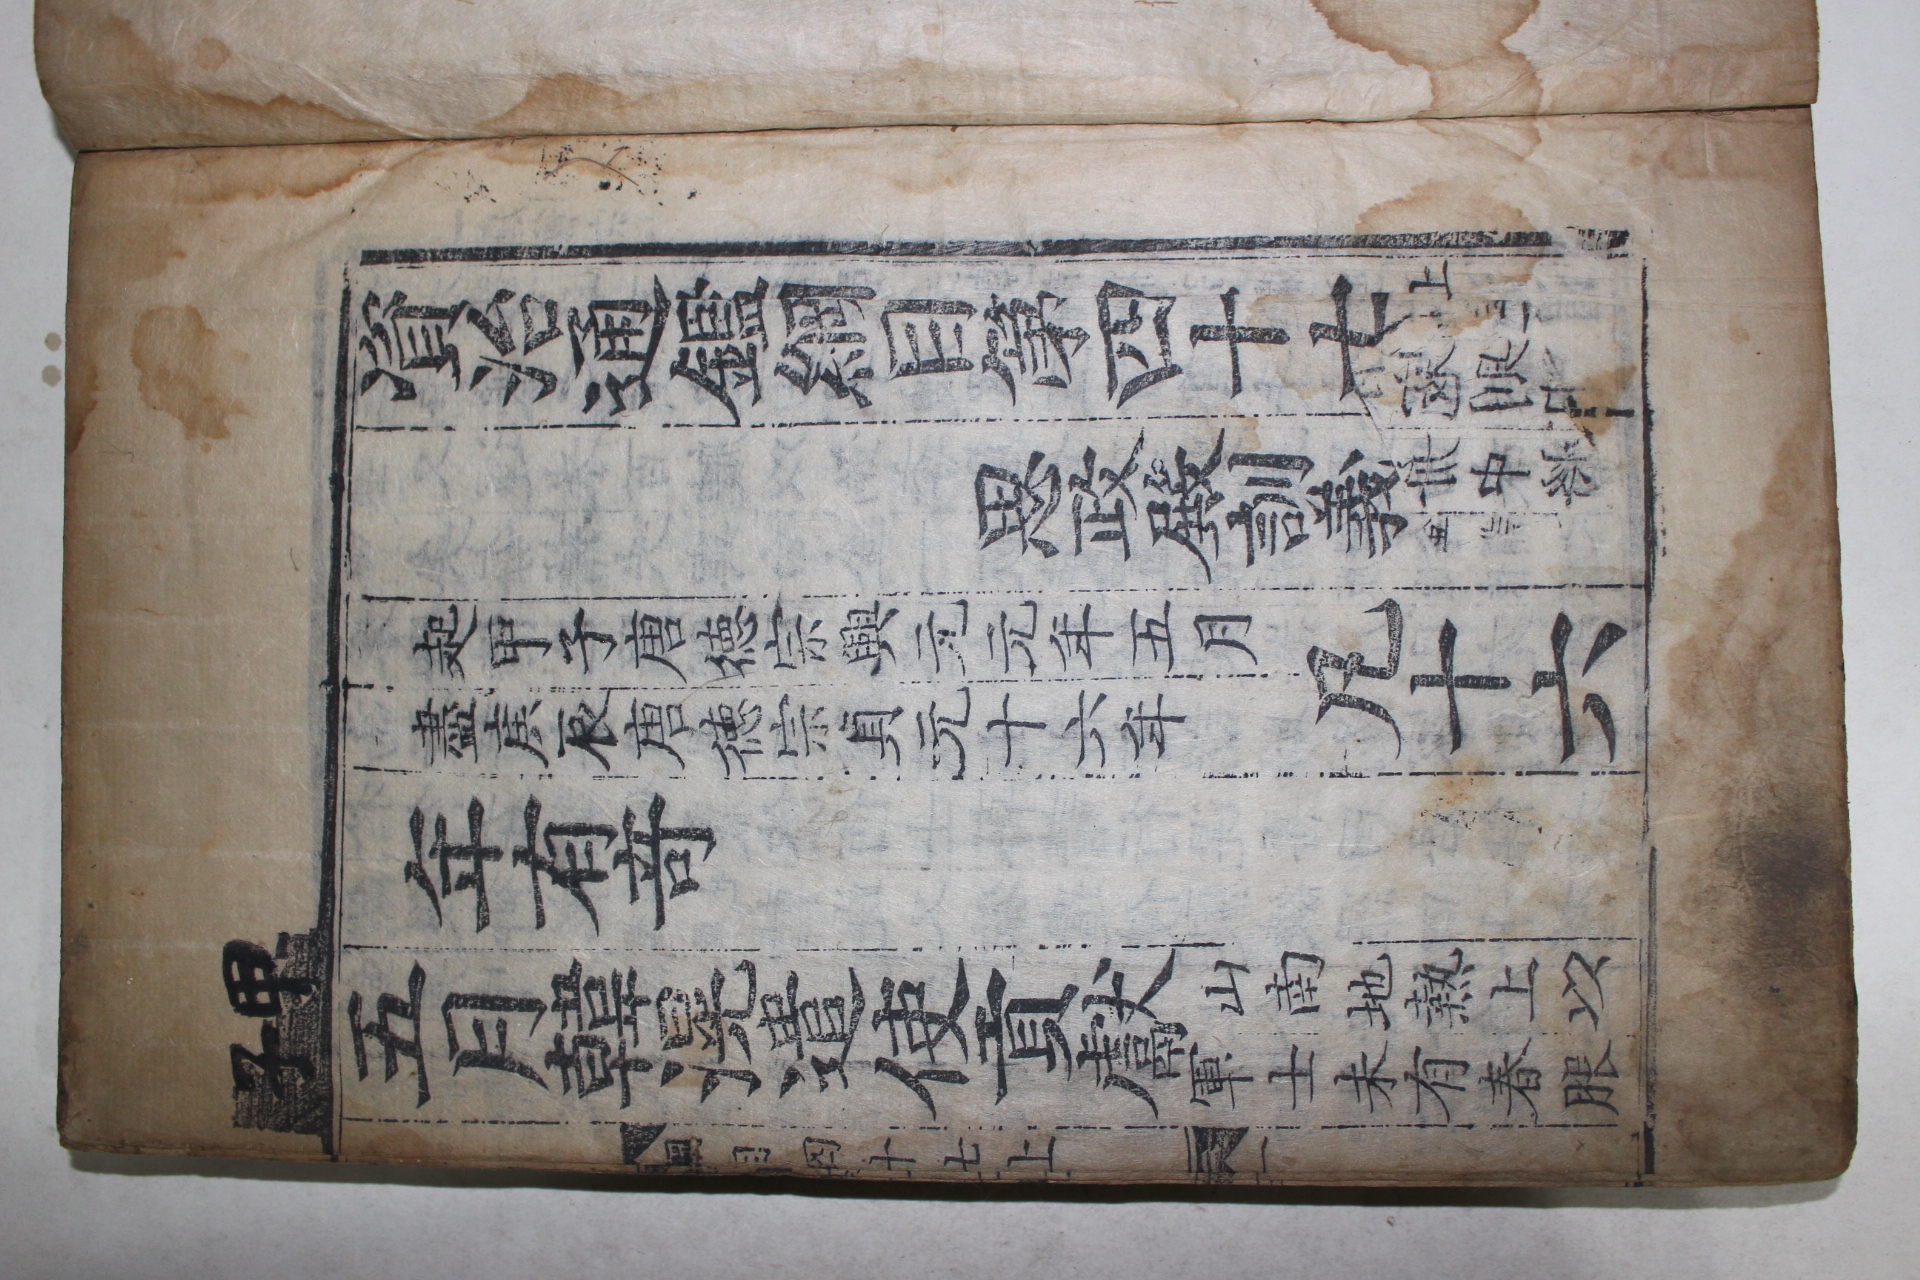 資治通鑑綱目第四十七上
思政殿訓義
起甲子唐德宗興元元年五月
盡庚辰唐德宗貞元十六年
凡十六
年有奇
甲子
五月韓滉遣使貢獻
山南地熱上以
軍士未有春服
綱目四十七上
一